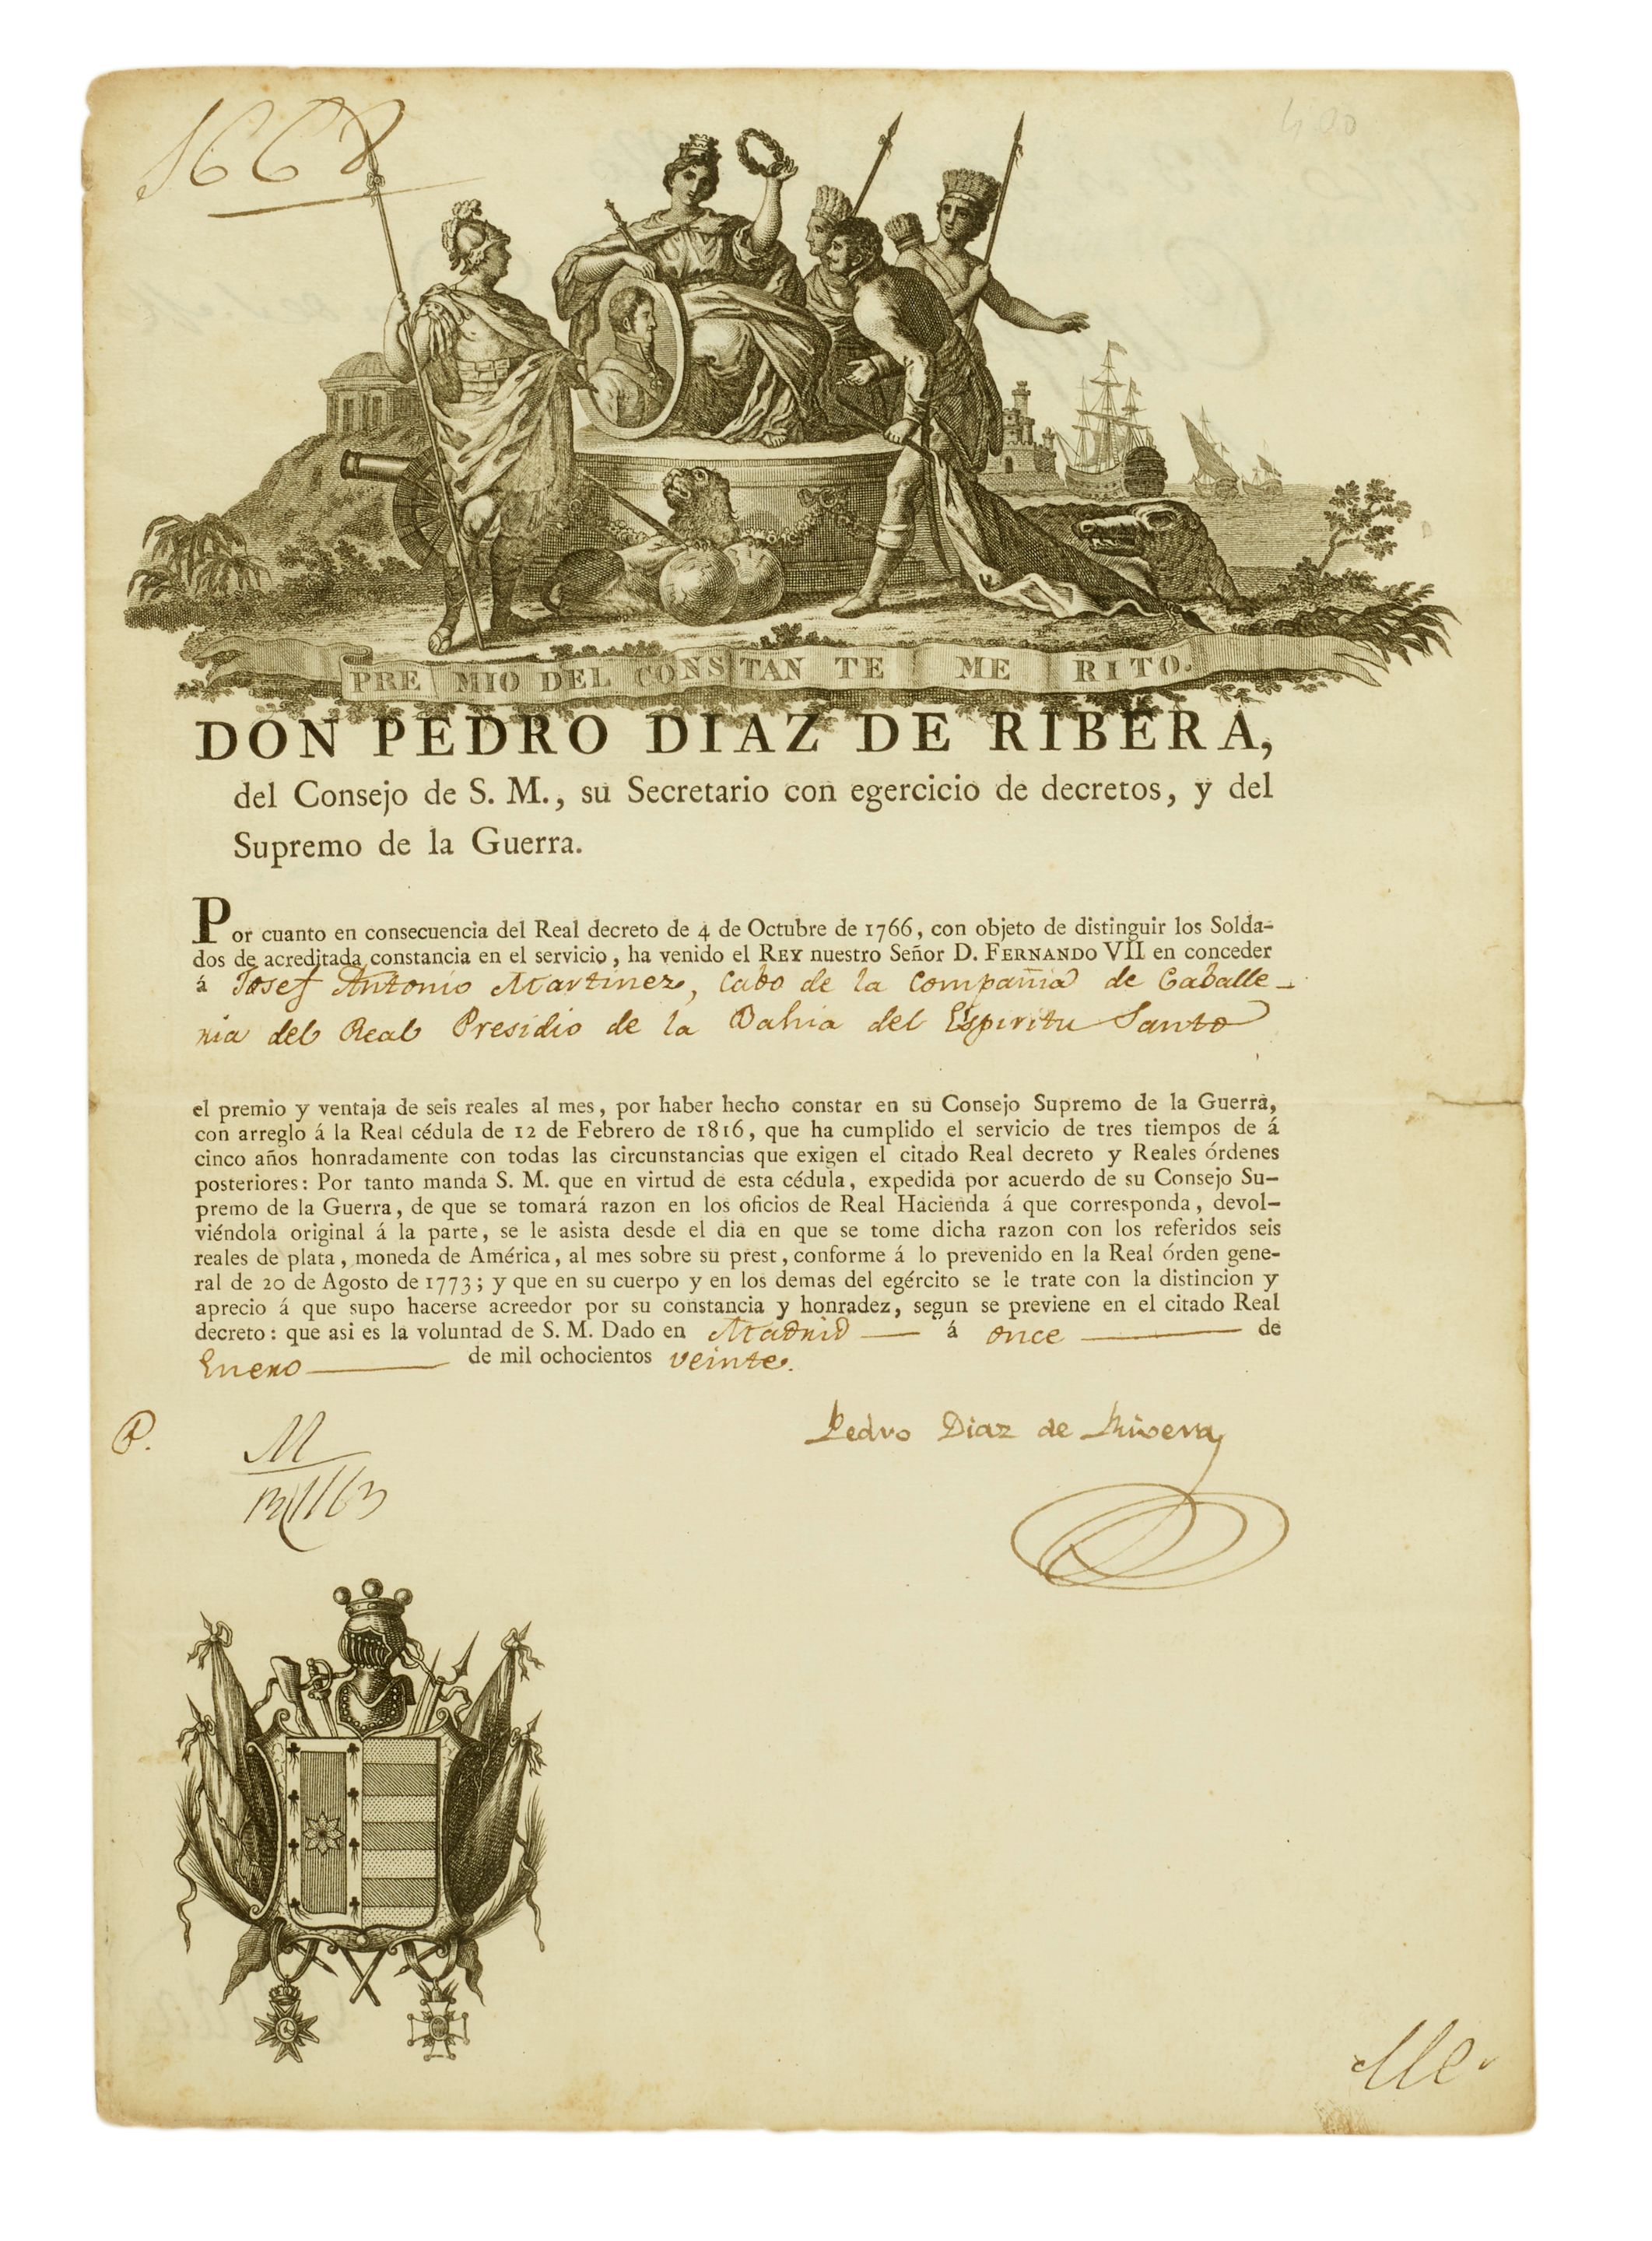 1668
400
PREMIO DEL CONSTANTE MERITO.
DON PEDRO DIAZ DE RIBERA,
del Consejo de S. M., su Secretario con egercicio de decretos, y del
Supremo de la Guerra.
Por cuanto en consecuencia del Real decreto de 4 de Octubre de 1766, con objeto de distinguir los Solda-
dos de acreditada constancia en el servicio, ha venido el REY nuestro Señor D. FERNANDO VII en conceder
á Josef Antonio Martinez, Cabo de la Compañia de Caballe-
ria del Real Presidio de la Bahia del Espiritu Santo
el premio y ventaja de seis reales al mes, por haber hecho constar en su Consejo Supremo de la Guerra,
con arreglo á la Real cédula de 12 de Febrero de 1816, que ha cumplido el servicio de tres tiempos de á
cinco años honradamente con todas las circunstancias que exigen el citado Real decreto y Reales órdenes
posteriores: Por tanto manda S. M. que en virtud de esta cédula, expedida por acuerdo de su Consejo Su-
premo de la Guerra, de que se tomará razon en los oficios de Real Hacienda á que corresponda, devol-
viéndola original á la parte, se le asista desde el dia en que se tome dicha razon con los referidos seis
reales de plata, moneda de América, al mes sobre su prest, conforme á lo prevenido en la Real órden gene-
ral de 20 de Agosto de 1773; y que en su cuerpo y en los demas del egército se le trate con la distincion y
aprecio á que supo hacerse acreedor por su constancia y honradez, segun se previene en el citado Real
decreto: que asi es la voluntad de S. M. Dado en Madrid á once de
Enero de mil ochocientos veinte.
P.
M
Pedro Diaz de Rivera